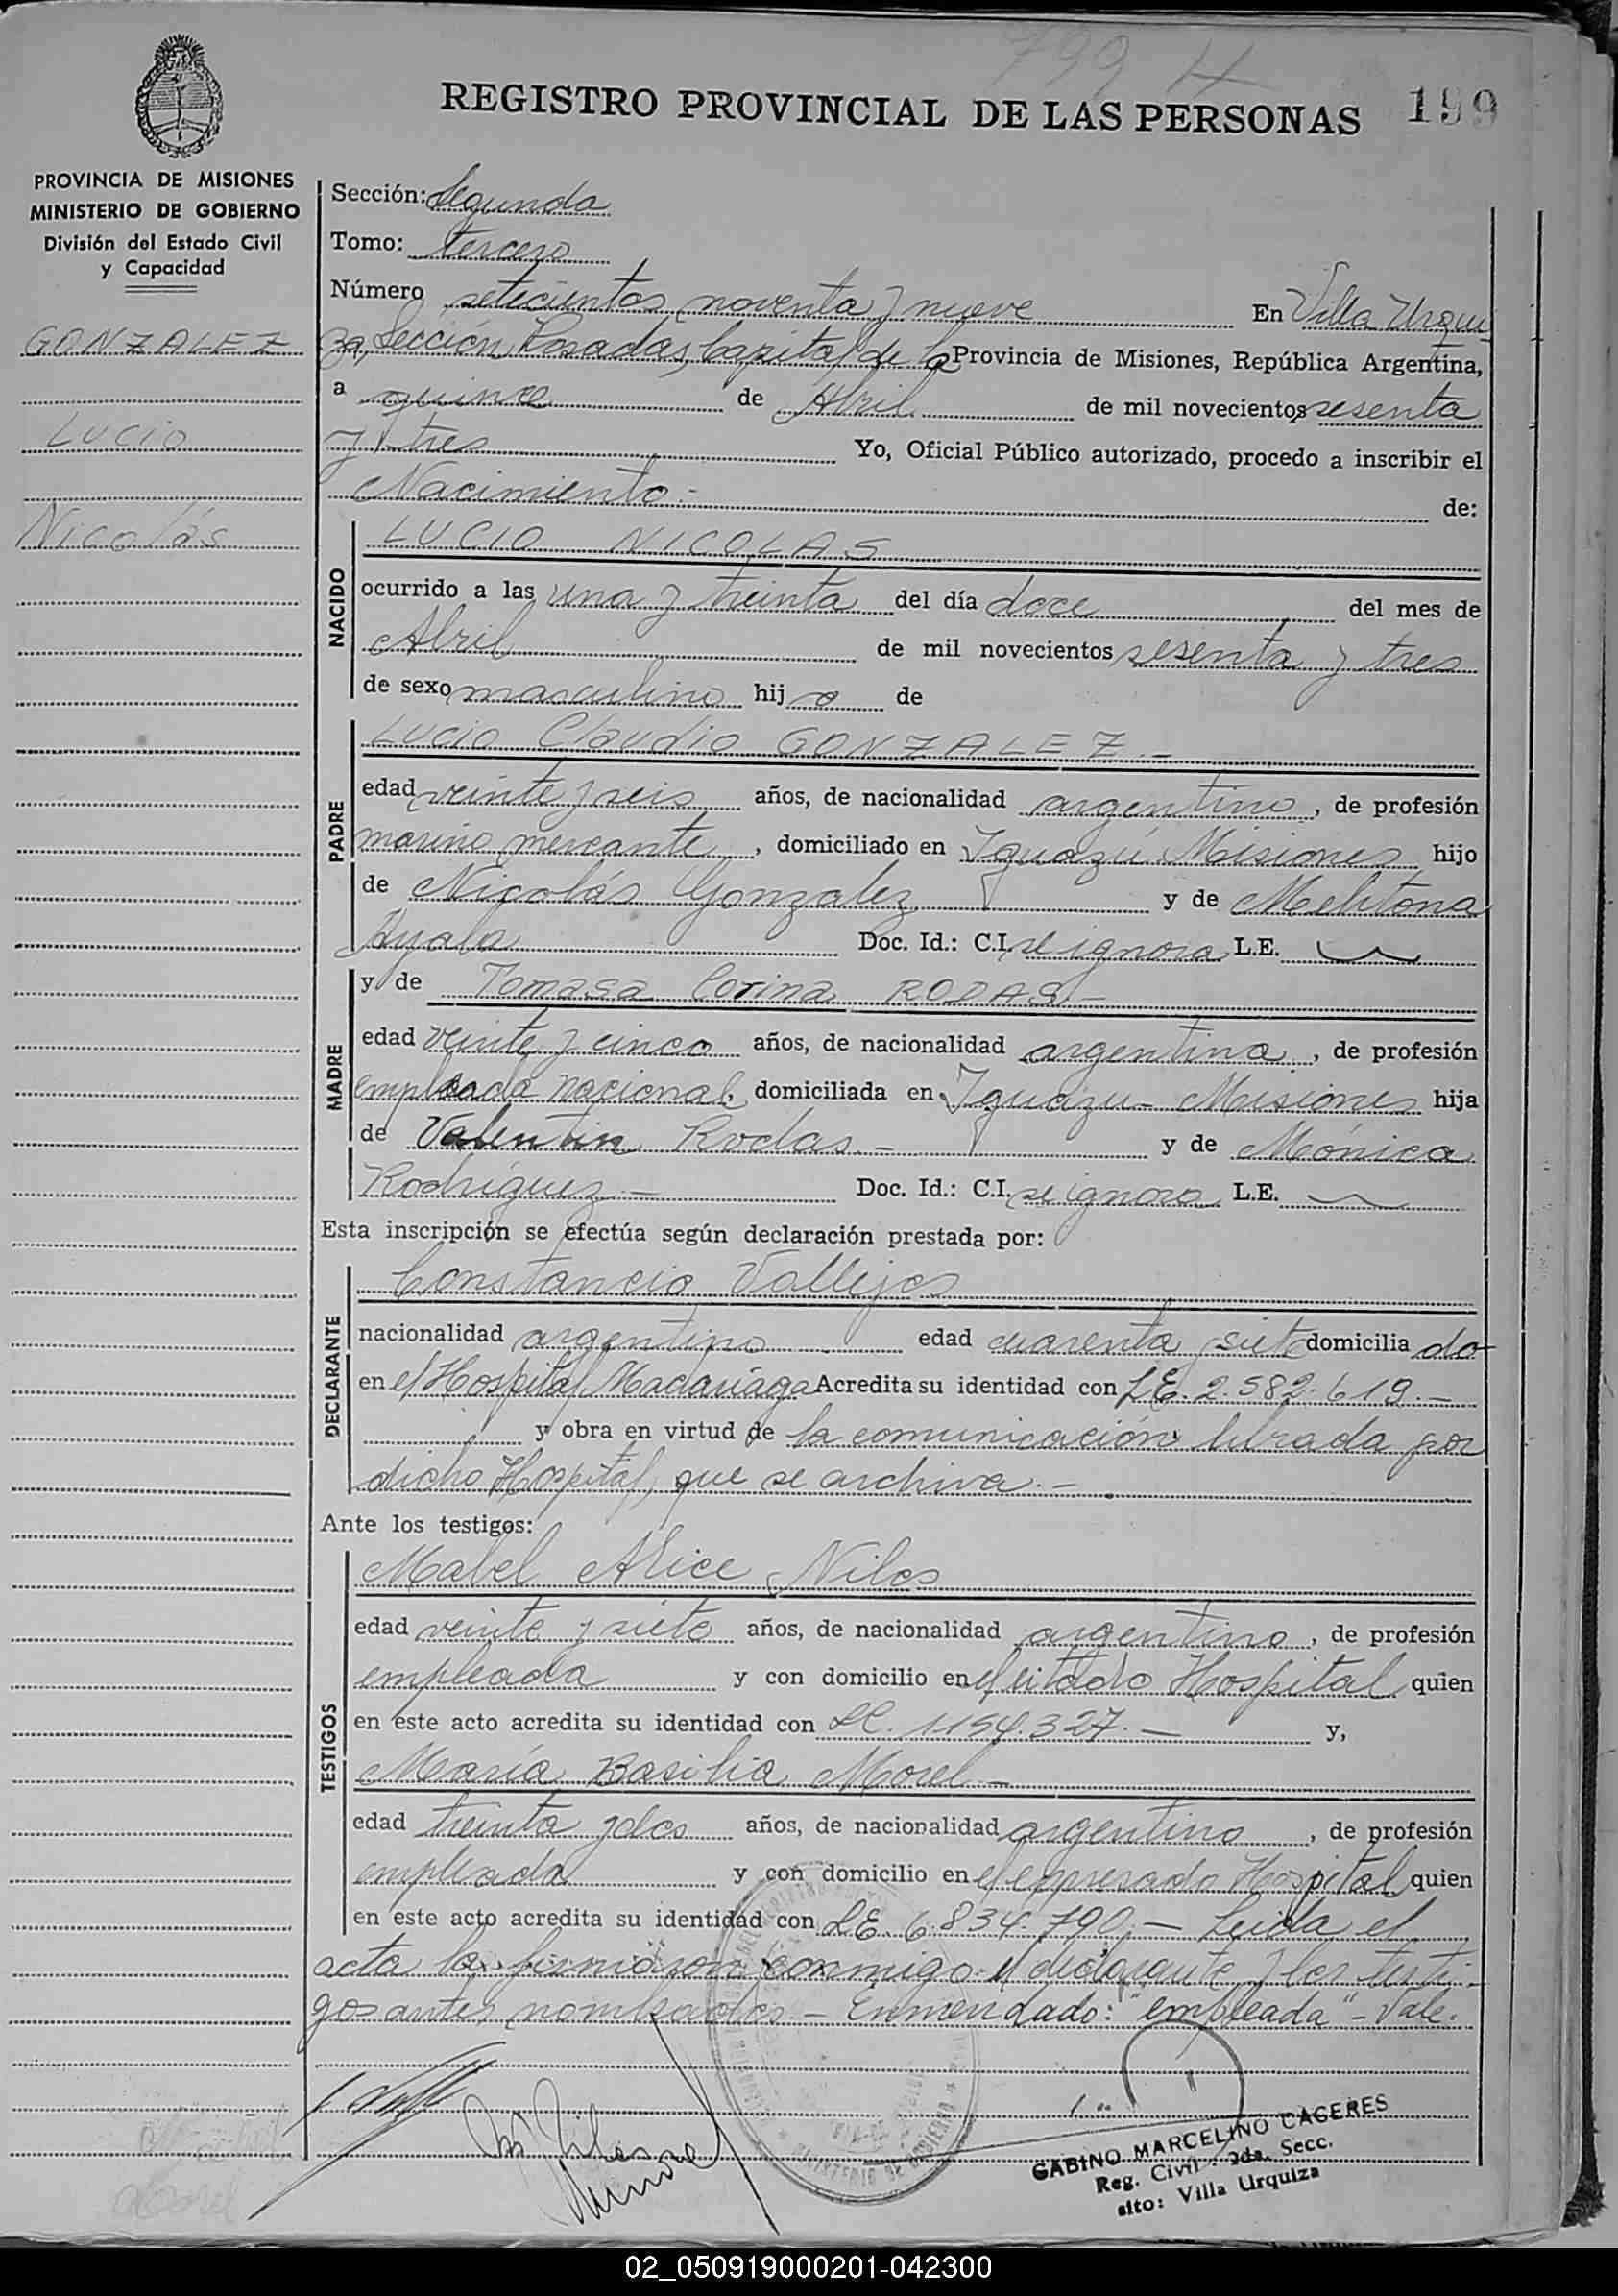 799 H
REGISTRO PROVINCIAL DE LAS PERSONAS 199
PROVINCIA DE MISIONES
MINISTERIO DE GOBIERNO
División del Estado Civil
y Capacidad
GONZALEZ
Lucio
Nicolás
Sección: Segunda
Tomo: tercero
Número setecientos noventa y nueve En Villa Urqui
za, Sección Posadas, Capital de la Provincia de Misiones, República Argentina,
a quince de Abril de mil novecientos sesenta
y tres Yo, Oficial Público autorizado, procedo a inscribir el
Nacimiento.- de:
NACIDO
LUCIO NICOLAS
ocurrido a las una y treinta del día doce del mes de
Abril de mil novecientos sesenta y tres
de sexo masculino hijo de
PADRE
Lucio Claudio GONZALEZ.-
edad veinte y seis años, de nacionalidad argentino, de profesión
marino mercante, domiciliado en Iguazú Misiones hijo
de Nicolás Gonzalez y de Melitona
Ayala Doc. Id.: C.I. se ignora L.E.
MADRE
y de Tomasa Corina RODAS.-
edad veinte y cinco años, de nacionalidad argentina, de profesión
empleada nacional, domiciliada en Iguazu - Misiones hija
de Valentin Rodas.- y de Mónica
Rodríguez.- Doc. Id.: C.I. se ignora L.E.
Esta inscripción se efectúa según declaración prestada por:
DECLARANTE
Constancio Vallejos
nacionalidad argentino edad cuarenta y siete domiciliado
en el Hospital Madariaga Acredita su identidad con L.E. 2.582.619.-
y obra en virtud de la comunicación librada por
dicho Hospital, que se archiva.-
Ante los testigos:
TESTIGOS
Mabel Alice Niles
edad veinte y siete años, de nacionalidad argentina, de profesión
empleada y con domicilio en el citado Hospital quien
en este acto acredita su identidad con LC. 1154.327.- y,
María Basilia Morel -
edad treinta y dos años, de nacionalidad argentina, de profesión
empleada y con domicilio en el expresado Hospital quien
en este acto acredita su identidad con LE. 6.834.790.- Leída el
acta la firmaron conmigo el declarante y los testi-
gos antes nombrados.- Enmendado: "empleada" - Vale.
GABINO MARCELINO CACERES
Reg. Civil 2da. Secc.
alto: Villa Urquiza
02_050919000201-042300